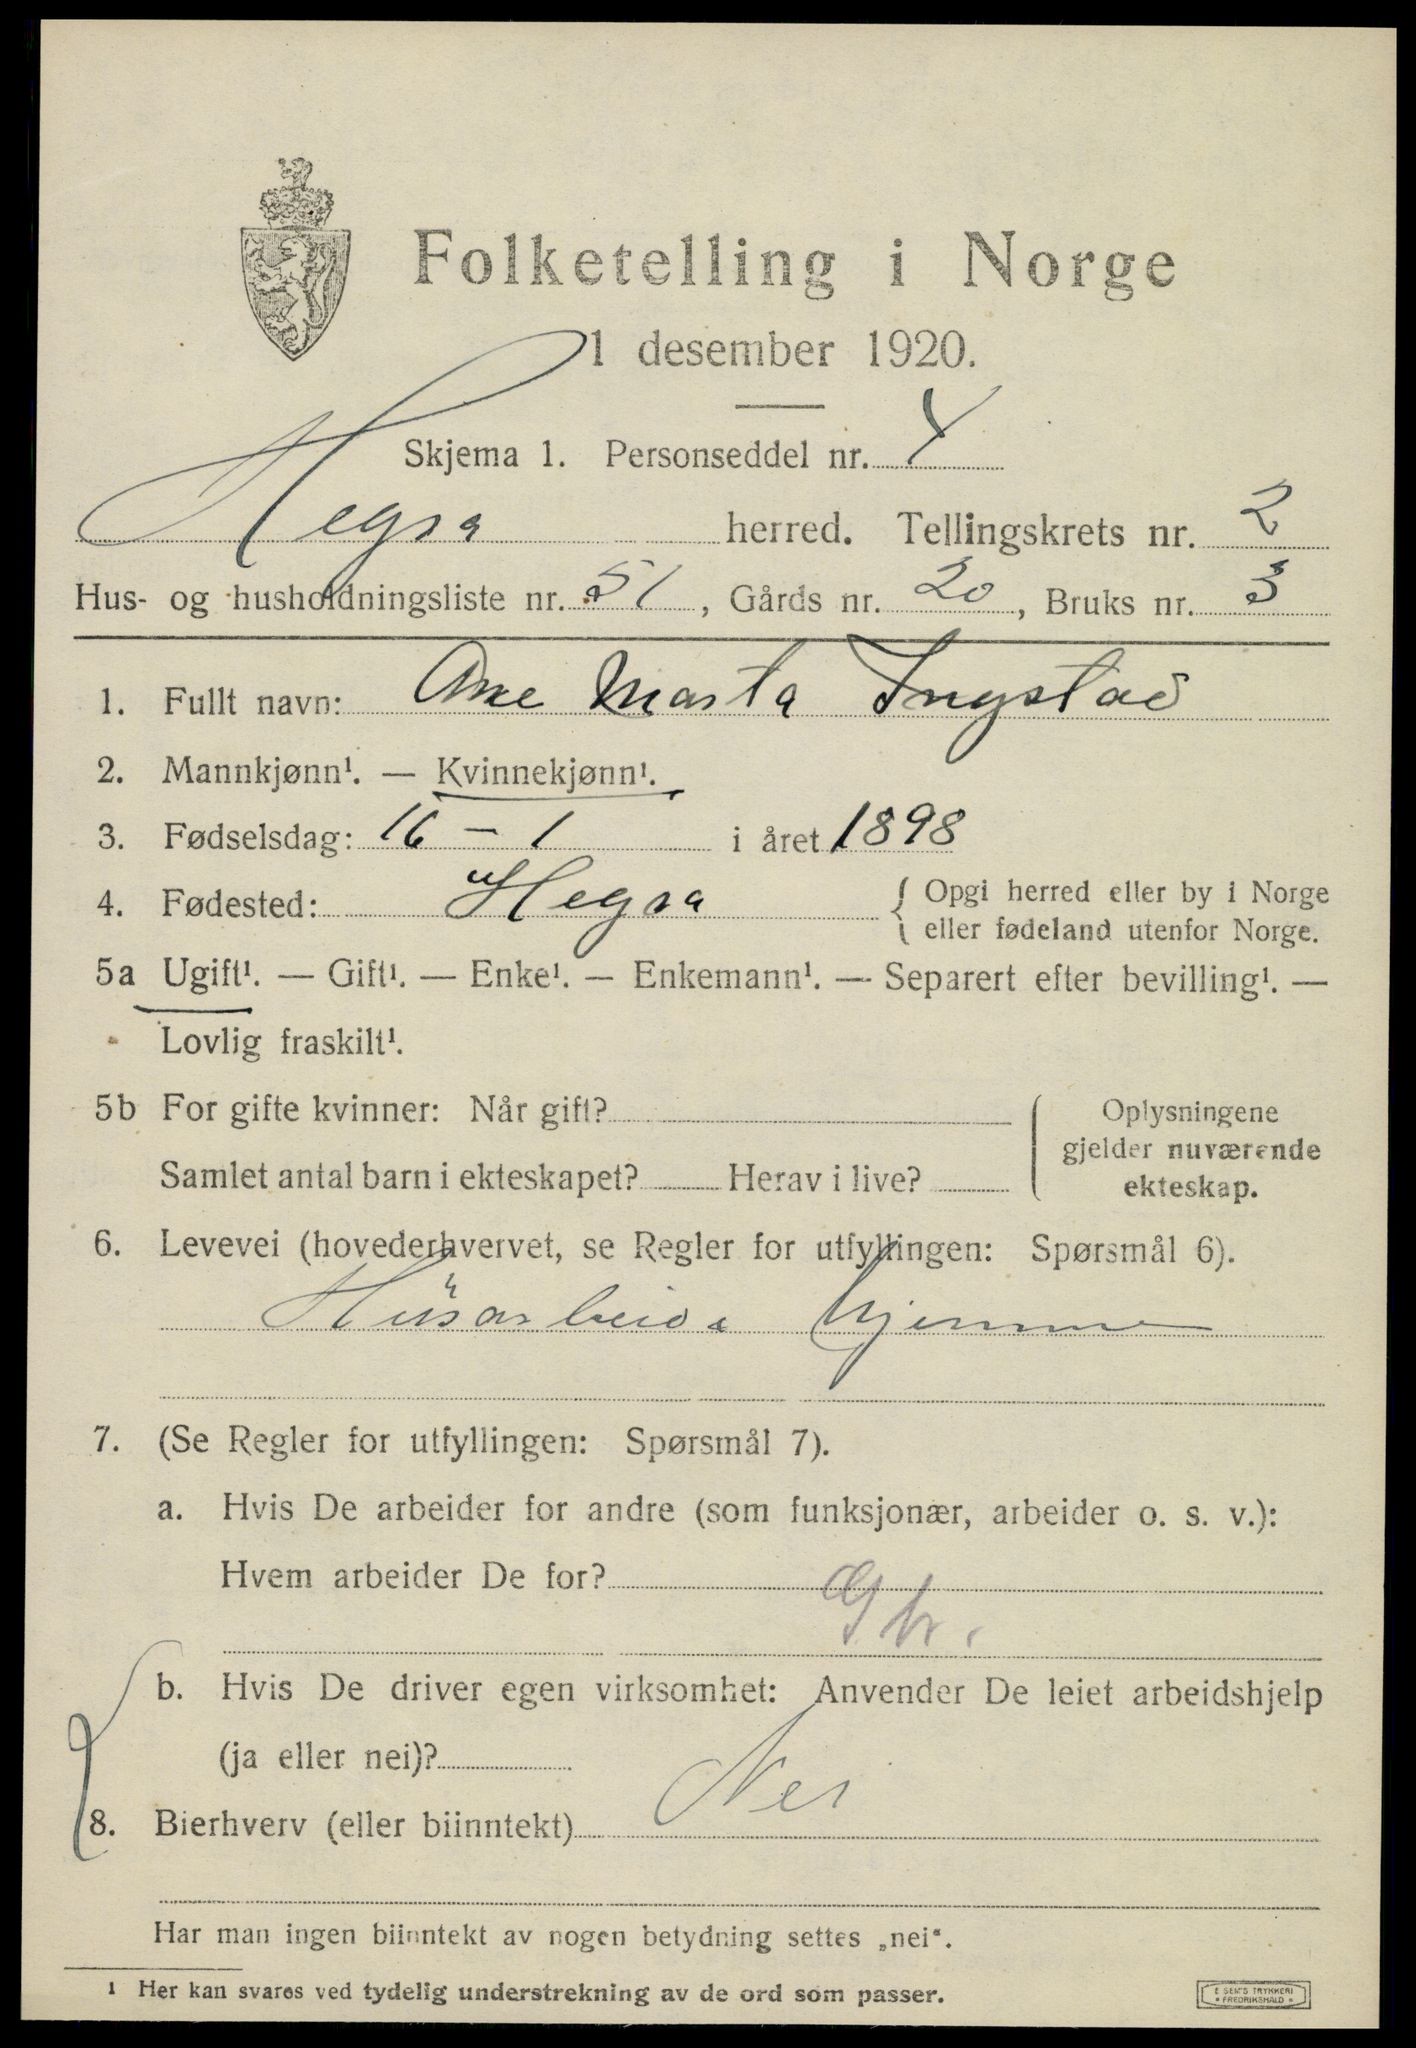 Folketelling i Norge
1 desember 1920.
Skjema 1. Personseddel nr. 4
Hegra herred. Tellingskrets nr. 2
Hus- og husholdningsliste nr. 51, Gårds nr. 20, Bruks nr. 3
1. Fullt navn: Ane Marta Ingstad
2. Mannkjønn¹. — Kvinnekjønn¹.
3. Fødselsdag: 16 - 1 i året 1898
4. Fødested: Hegra { Opgi herred eller by i Norge
eller fødeland utenfor Norge.
5a Ugift¹. — Gift¹. — Enke¹. — Enkemann¹. — Separert efter bevilling¹. —
Lovlig fraskilt¹.
5b For gifte kvinner: Når gift? Oplysningene
gjelder nuværende
Samlet antal barn i ekteskapet? Herav i live? ekteskap.
6. Levevei (hovederhvervet, se Regler for utfyllingen: Spørsmål 6).
Húsarbeide hjemme
7. (Se Regler for utfyllingen: Spørsmål 7).
a. Hvis De arbeider for andre (som funksjonær, arbeider o. s. v.):
Hvem arbeider De for?
b. Hvis De driver egen virksomhet: Anvender De leiet arbeidshjelp
(ja eller nei)?
8. Bierhverv (eller biinntekt) Nei
Har man ingen biinntekt av nogen betydning settes „nei".
1 Her kan svares ved tydelig understrekning av de ord som passer.
E SEM'S TRYKKERI
* FREDRIKSHALD *